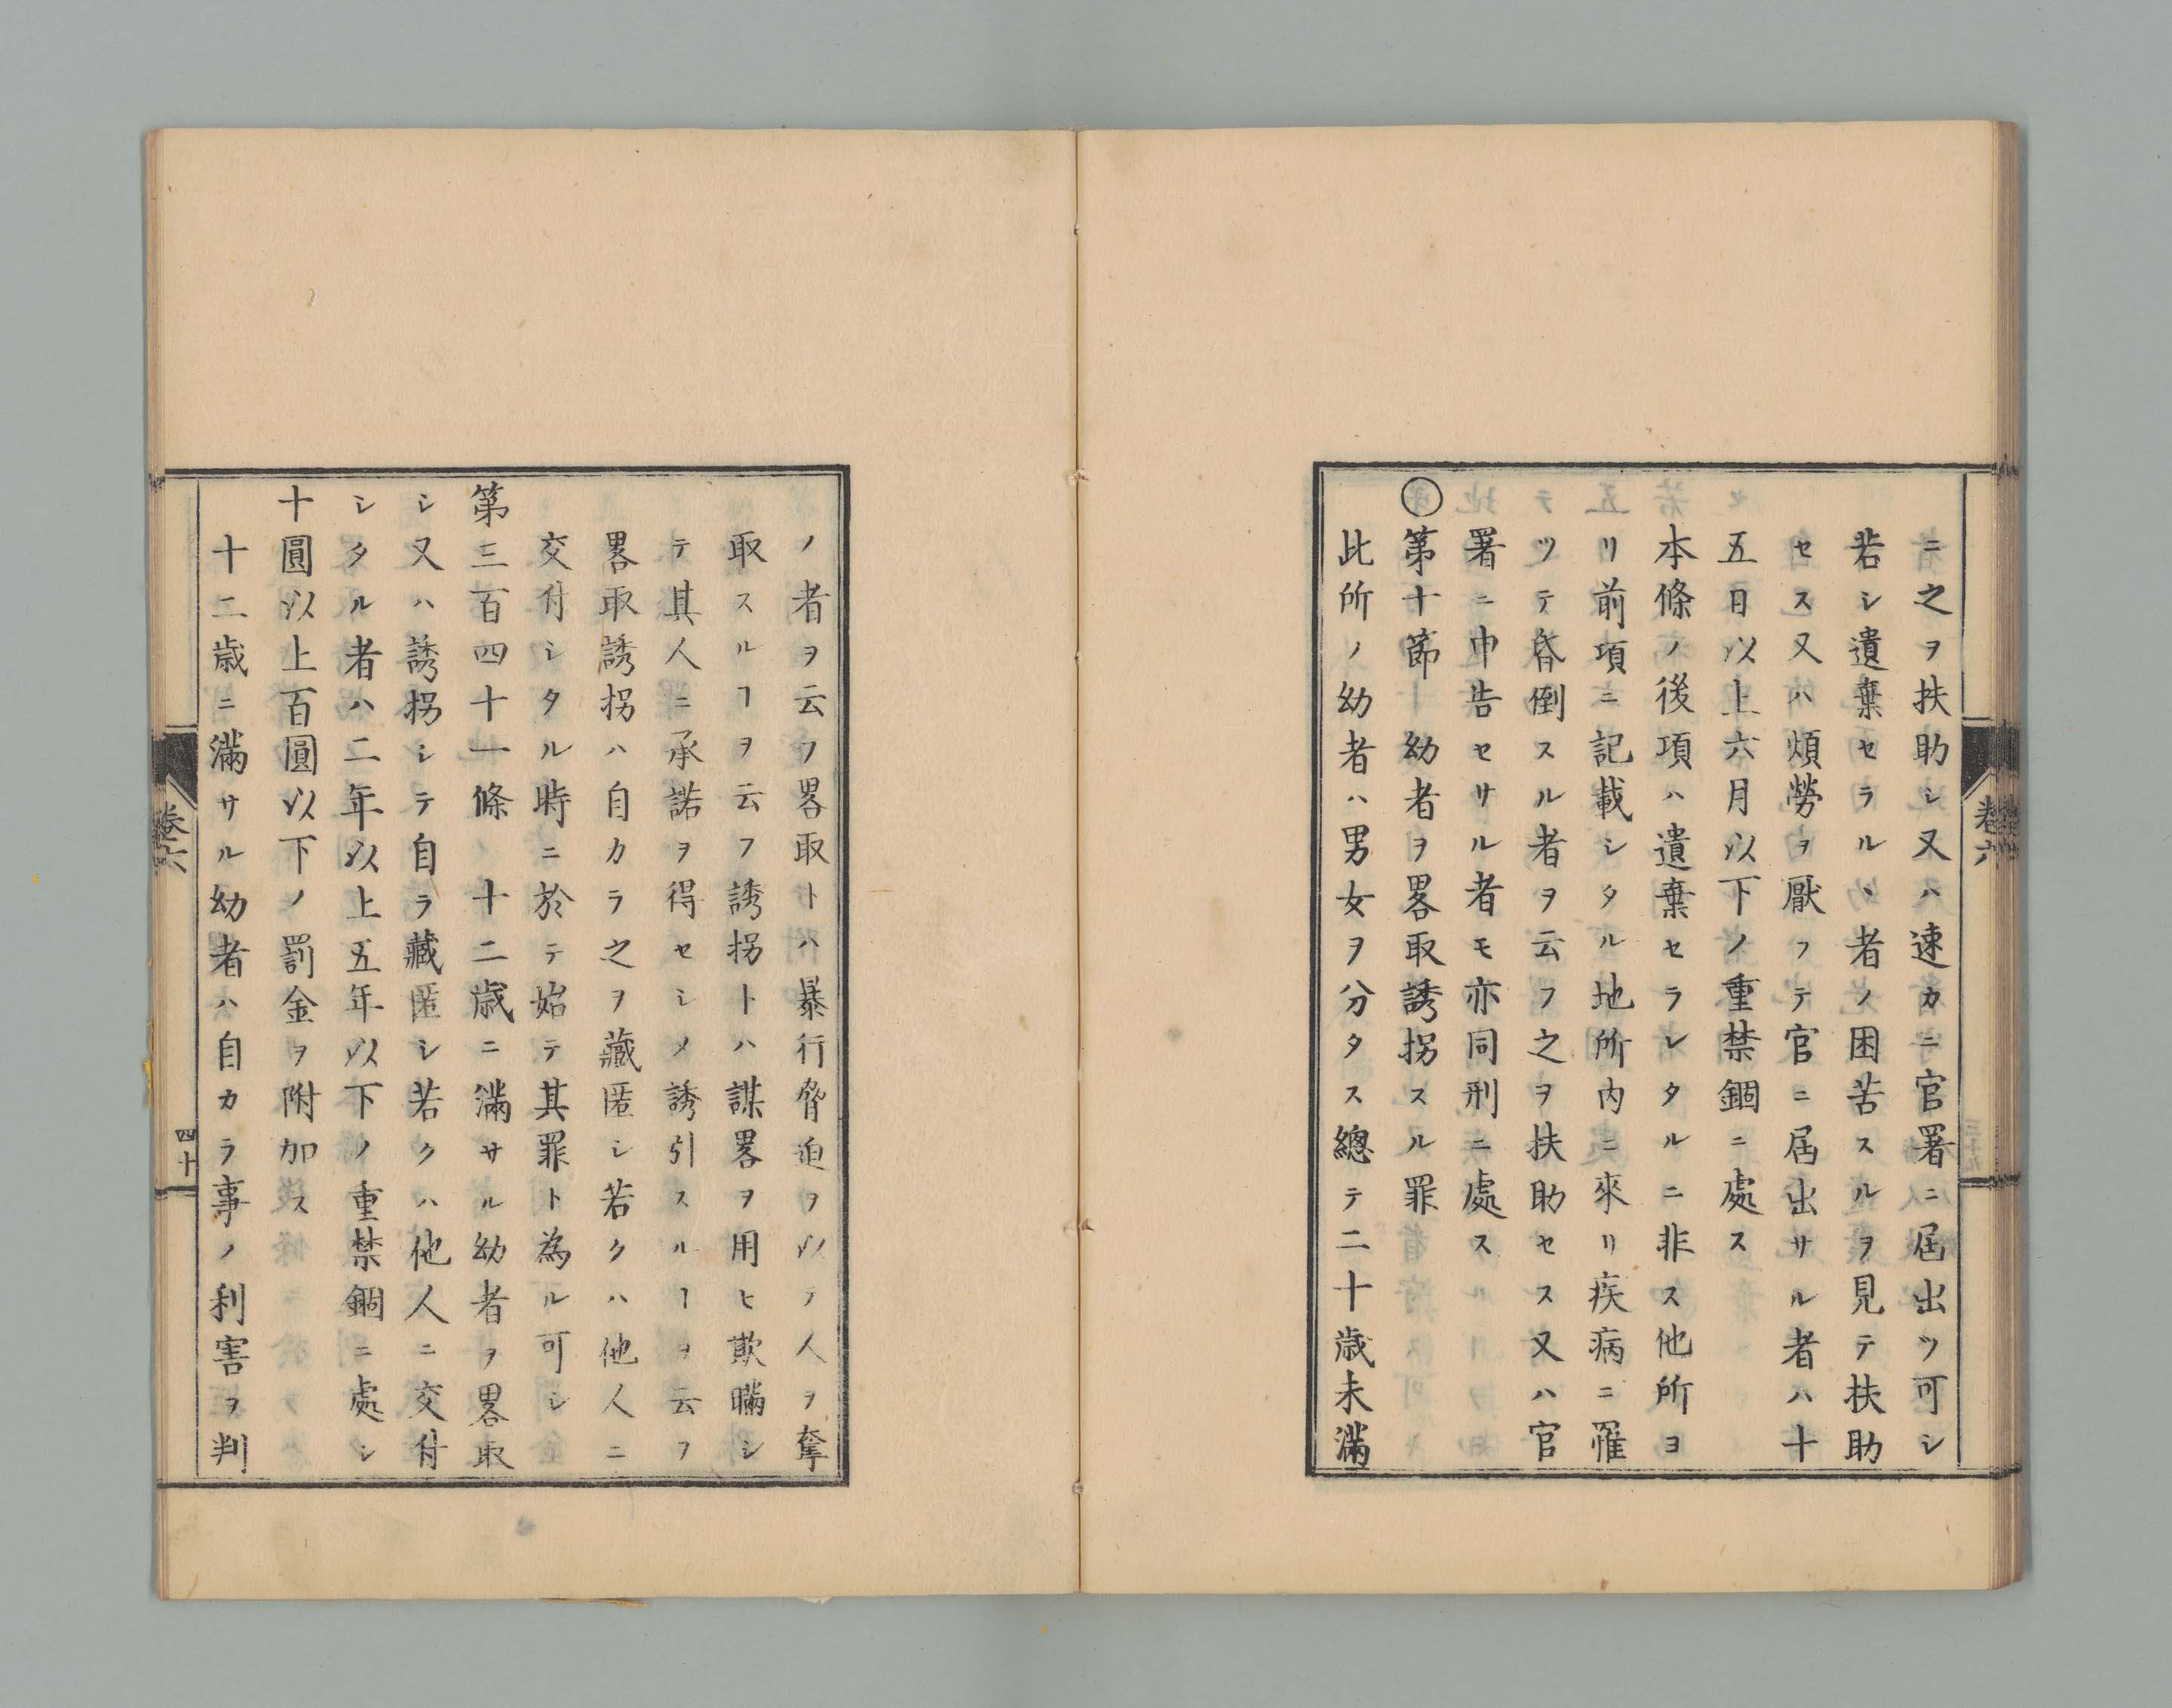 ニ之ヲ扶助シ又ハ速カニ官署ニ屆出ツ可シ
若シ遺棄セラルヽ者ノ困苦スルヲ見テ扶助
セス又ハ煩勞ヲ厭フテ官ニ屆出サル者ハ十
五日以上六月以下ノ重禁錮ニ處ス
本條ノ後項ハ遺棄セラレタルニ非ス他所ヨ
リ前項ニ記載シタル地所内ニ來リ疾病ニ罹
ツテ昏倒スル者ヲ云フ之ヲ扶助セス又ハ官
署ニ申告セサル者モ亦同刑ニ處ス
○第十節 幼者ヲ畧取誘拐スル罪
此所ノ幼者ハ男女ヲ分タス總テ二十歳未滿
卷六
ノ者ヲ云フ畧取トハ暴行脅迫ヲ以テ人ヲ奪
取スルヿヲ云フ誘拐トハ謀畧ヲ用ヒ欺瞞シ
テ其人ニ承諾ヲ得セシメ誘引スルヿヲ云フ
畧取誘拐ハ自カラ之ヲ藏匿シ若クハ他人ニ
交付シタル時ニ於テ始テ其罪ト為ル可シ
第三百四十一條 十二歳ニ滿サル幼者ヲ畧取
シ又ハ誘拐シテ自ラ藏匿シ若クハ他人ニ交付
シタル者ハ二年以上五年以下ノ重禁錮ニ處シ
十圓以上百圓以下ノ罰金ヲ附加ス
十二歳ニ滿サル幼者ハ自カラ事ノ利害ヲ判
卷六
四十